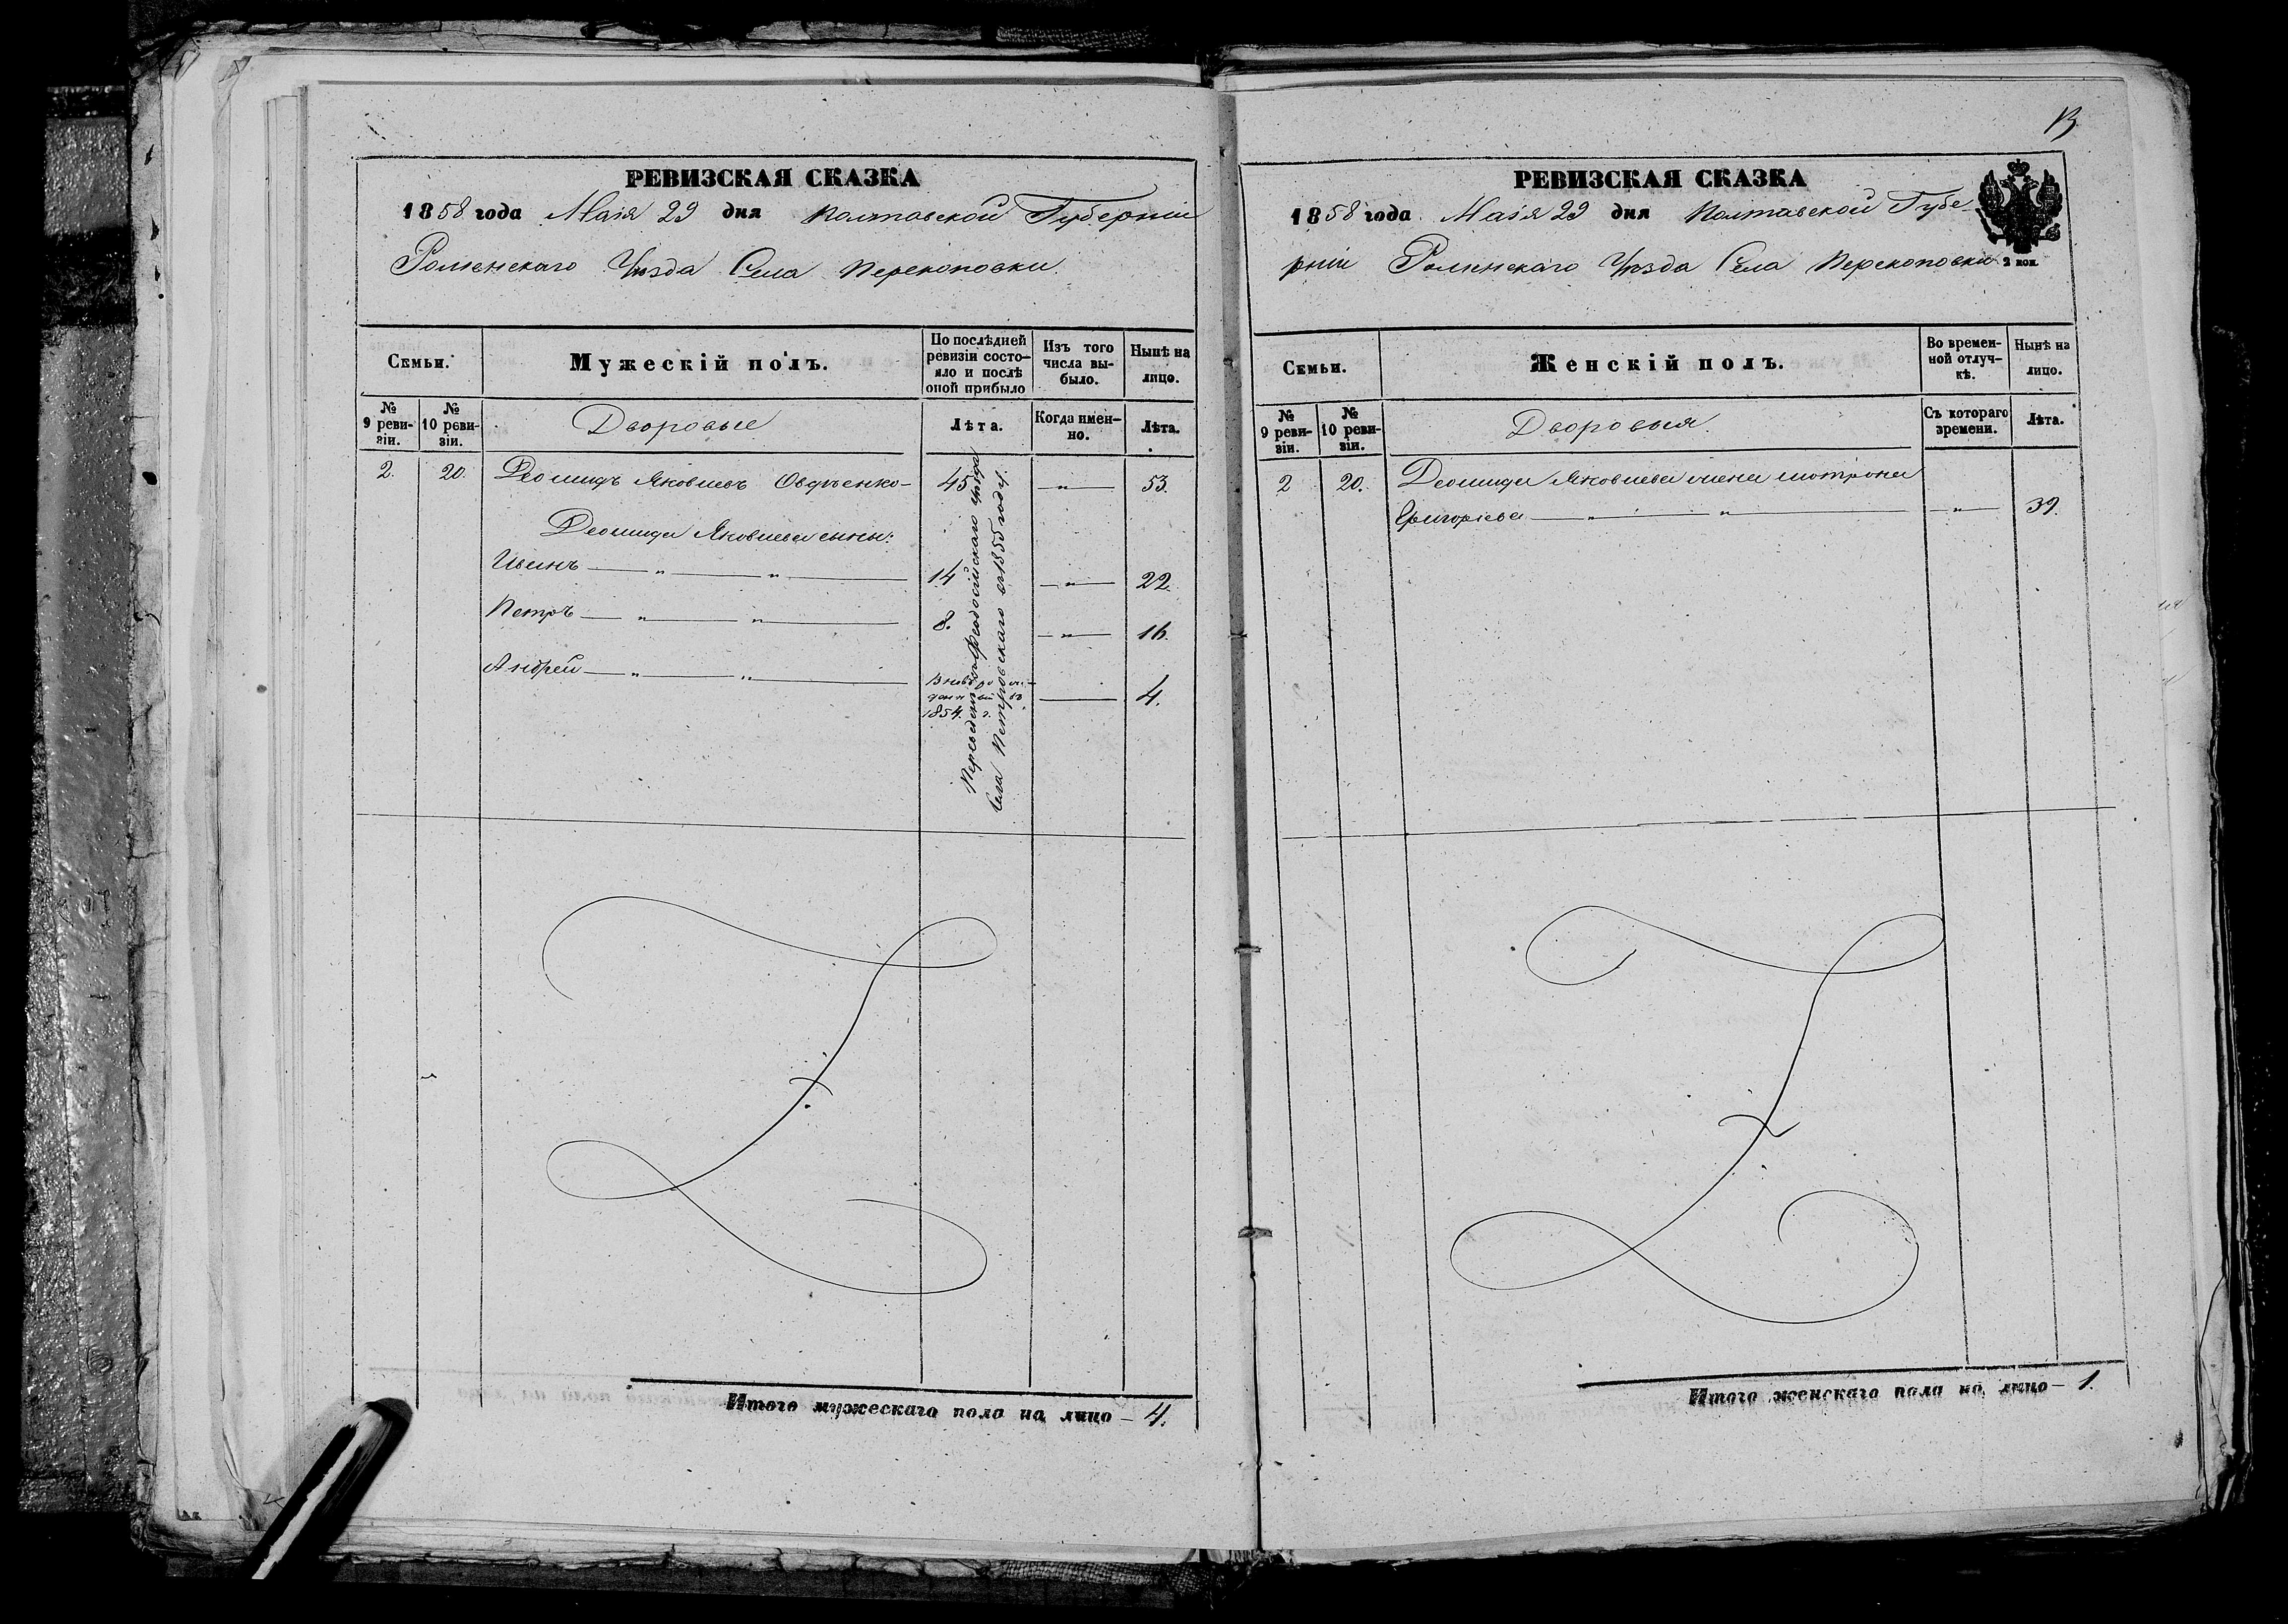 РЕВИЗСКАЯ СКАЗКА
1858 года Маія 29 дня Полтавской Губерніи
Роменскаго Уѣзда Села Перекоповки.
Семьи.
Мужескій полъ.
По послѣдней ревизіи состо-
яло и послѣ оной прибыло
Изъ того числа вы-
было.
Нынѣ на лицо.
№ 9 реви-
зіи.
№ 10 реви-
зіи.
Дворовые
Лѣта.
Когда имен-
но.
Лѣта.
2. 20. Деомидъ Яковлевъ Овдѣенко- 45 — " — 53.
Деомида Яковлева сыны:
Иванъ — " — " — 14 — " — 22.
Петръ — " — " — 8. — " — 16.
Андрей — " — " — Вновь рож-
денный въ
1854. г. — 4.
Переведены Феодосійскаго уѣзда
Села Петровскаго въ 1855 году.
Итого мужескаго пола на лицо — 4.
13
РЕВИЗСКАЯ СКАЗКА
1858 года Маія 29 дня Полтавской Губе-
рніи Роменскаго Уѣзда Села Перекоповки
2 коп.
Семьи.
Женскій полъ.
Во времен-
ной отлуч-
кѣ.
Нынѣ на лицо.
№ 9 реви-
зіи.
№ 10 реви-
зіи.
Дворовыя.
Съ котораго времени.
Лѣта.
2 20. Деомида Яковлева жена Мотрона
Григорьева — " — " — — " — 39.
Итого женскаго пола на лицо — 1.